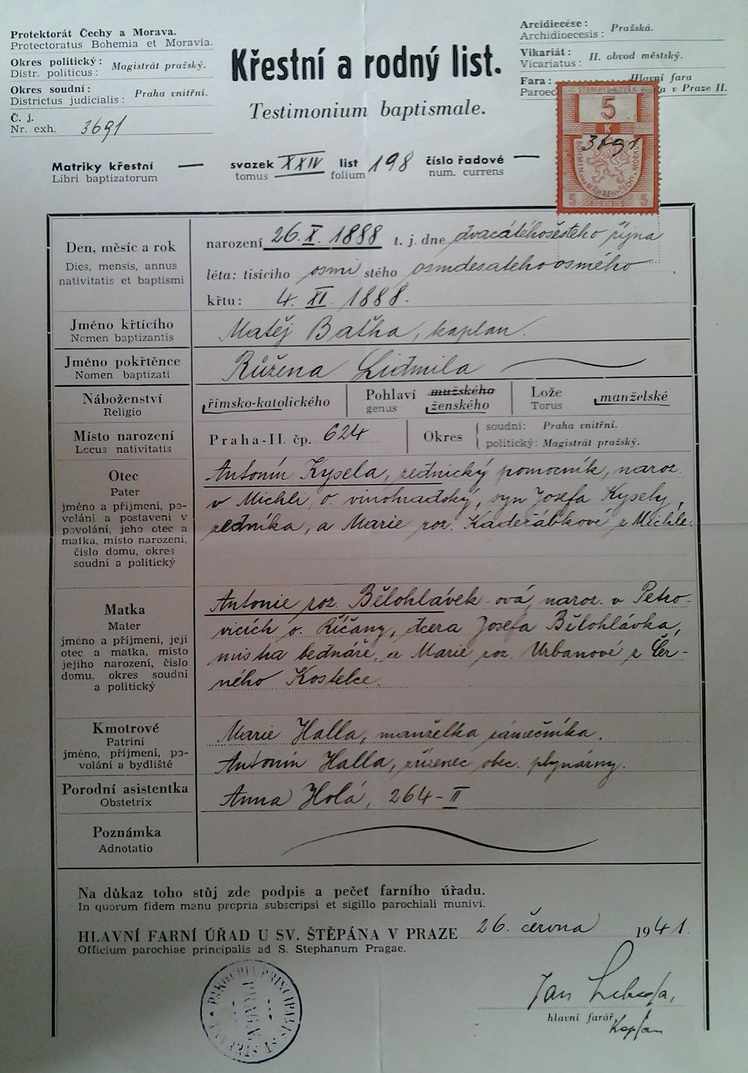 Protektorát Čechy a Morava.
Protectoratus Bohemia et Moravia.
Okres politický : Magistrát pražský.
Distr. politicus :
Okres soudní : Praha vnitřní.
Districtus judicialis :
Č. j.
Nr. exh. 3691
Křestní a rodný list.
Testimonium baptismale.
Arcidiecése : Pražská.
Archidioecesis :
Vikariát : II. obvod městský.
Vicariatus :
Fara : Hlavní fara
v Praze II.
5
K
3691
5 5
Matriky křestní — svazek XXIV list 198 číslo řadové —
Libri baptizatorum tomus folium num. currens
Den, měsíc a rok
Dies, mensis, annus
nativitatis et baptismi
narození 26. X. 1888 t. j. dne dvacátéhošestého října
léta: tisícího osmi stého osmdesátéhoosmého
křtu : 4. XI. 1888.
Jméno křtícího
Nomen baptizantis
Matěj Baťha, kaplan.
Jméno pokřtěnce
Nomen baptizati
Růžena Lidmila
Náboženství
Religio
římsko-katolického
Pohlaví mužského
genus ženského
Lože
Torus manželské
Místo narození
Locus nativitatis
Praha-II. čp. 624
Okres
soudní: Praha vnitřní.
politický: Magistrát pražský.
Otec
Pater
jméno a příjmení, po-
volání a postavení v
povolání, jeho otec a
matka, místo narození,
číslo domu, okres
soudní a politický
Antonín Kysela, zednický pomocník, naroz.
v Michli, o. vinohradský, syn Josefa Kysely,
zedníka, a Marie roz. Kadeřábkové z Michle.
Matka
Mater
jméno a příjmení, její
otec a matka, místo
jejího narození, číslo
domu, okres soudní
a politický
Antonie roz. Bělohlávek-ová, naroz. v Petro-
vicích o. Říčany, dcera Josefa Bělohlávka,
mistra bednáře, a Marie roz. Urbanové z Čer-
ného Kostelce.
Kmotrové
Patrini
jméno, příjmení, po-
volání a bydliště
Marie Halla, manželka zámečníka.
Antonín Halla, zřízenec obec. plynárny.
Porodní asistentka
Obstetrix
Anna Holá, 264-II
Poznámka
Adnotatio
Na důkaz toho stůj zde podpis a pečeť farního úřadu.
In quorum fidem manu propria subscripsi et sigillo parochiali munivi.
HLAVNÍ FARNÍ ÚŘAD U SV. ŠTĚPÁNA V PRAZE 26. června 1941.
Officium parochiae principalis ad S. Stephanum Pragae.
Jan
hlavní farář.
Kaplan